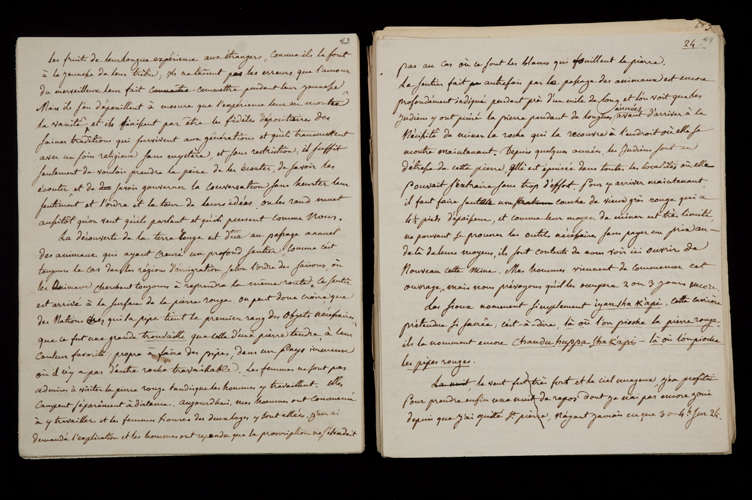 43
les fruits de leur longue expérience aux étrangers, comme ils le font
à la jeunesse de leur tribu, ils ne taisent pas les erreurs que l'amour
du merveilleux leur fait connaître pendant leur jeunesse.
Mais ils s'en dépouillent à mesure que l'expérience leur en montre
la vanité, et ils finissent par être les fidèles dépositaires des
saines traditions qui survivent aux générations et qu'ils transmettent
avec un soin religieux sans mystère, et sans restriction, il suffit
seulement de vouloir prendre la peine de les écouter, de savoir les
écouter et de savoir gouverner la conversation sans heurter leur
sentiment et l'ordre et le tour de leurs idées, ou les rend muet
aussitôt qu'on veut qu'ils parlent et qu'ils pensent comme nous.
La découverte de la terre rouge est due au passage annuel
des animaux qui ayant creusé un profond sentier, comme c'est
toujours le cas dans les régions d'émigration selon l'ordre des saisons où
les animaux cherchent toujours à reprendre la même route, ce sentier
est arrivé à la surface de la pierre rouge. on peut donc croire que
des Nations chez qui la pipe tient le premier rang des objets nécessaires
que ce fut une grande trouvaille que celle d'une pierre tendre, à leur
couleur favorite propre à faire des pipes, dans un pays immense
où il n'y a pas d'autre roche travaillable. Les femmes ne sont pas
admises à visiter la pierre rouge tandis que les hommes y travaillent. elles
campent séparément à distance. aujourd'hui, mes hommes ont commencé
à y travailler et les femmes sioures des deux loges y sont allées, j'en ai
demandé l'explication et les hommes ont répondu que la proscription ne s'étendait
24.
pas au cas où ce sont les blancs qui fouillent la pierre.
Le sentier fait autrefois par le passage des animaux est encore
profondément indiqué pendant près d'un mile de long, et l'on voit que les
Indiens y ont puisé la pierre pendant de longues années avant d'arriver à la
nécessité de miner la roche qui la recouvre à l'endroit où elle se
montre maintenant. Depuis quelques années, les Indiens sont en
détresse de cette pierre, elle est épuisée dans toutes les localités où elle
pouvait s'extraire sans trop d'effort. Pour y arriver maintenant,
il faut faire sauter une couche de vieux grès rouge qui a
4½ pieds d'épaisseur, et comme leur moyen de miner est très limité
ne pouvant se procurer les outils nécessaires sans payer un prix au-
delà de leurs moyens, ils sont contents de nous voir ici ouvrir de
nouveau cette mine. Mes hommes viennent de commencer cet
ouvrage, mais nous prévoyons qu'il les occupera 2 ou 3 jours encore.
Les Sioux nomment simplement iyanska K'api, cette carrière
prétendue si sacrée, c'est-à-dire, là où l'on pioche la pierre rouge.
ils la nomment encore Chandu huppa sha K'api — là où l'on pioche
les pipes rouges.
La nuit le vent fut très fort et le ciel nuageux j'en profitai
pour prendre enfin une nuit de repos dont je n'ai pas encore joui
depuis que j'ai quitté St pierre, n'ayant jamais eu que 3 ou 4h sur 24.